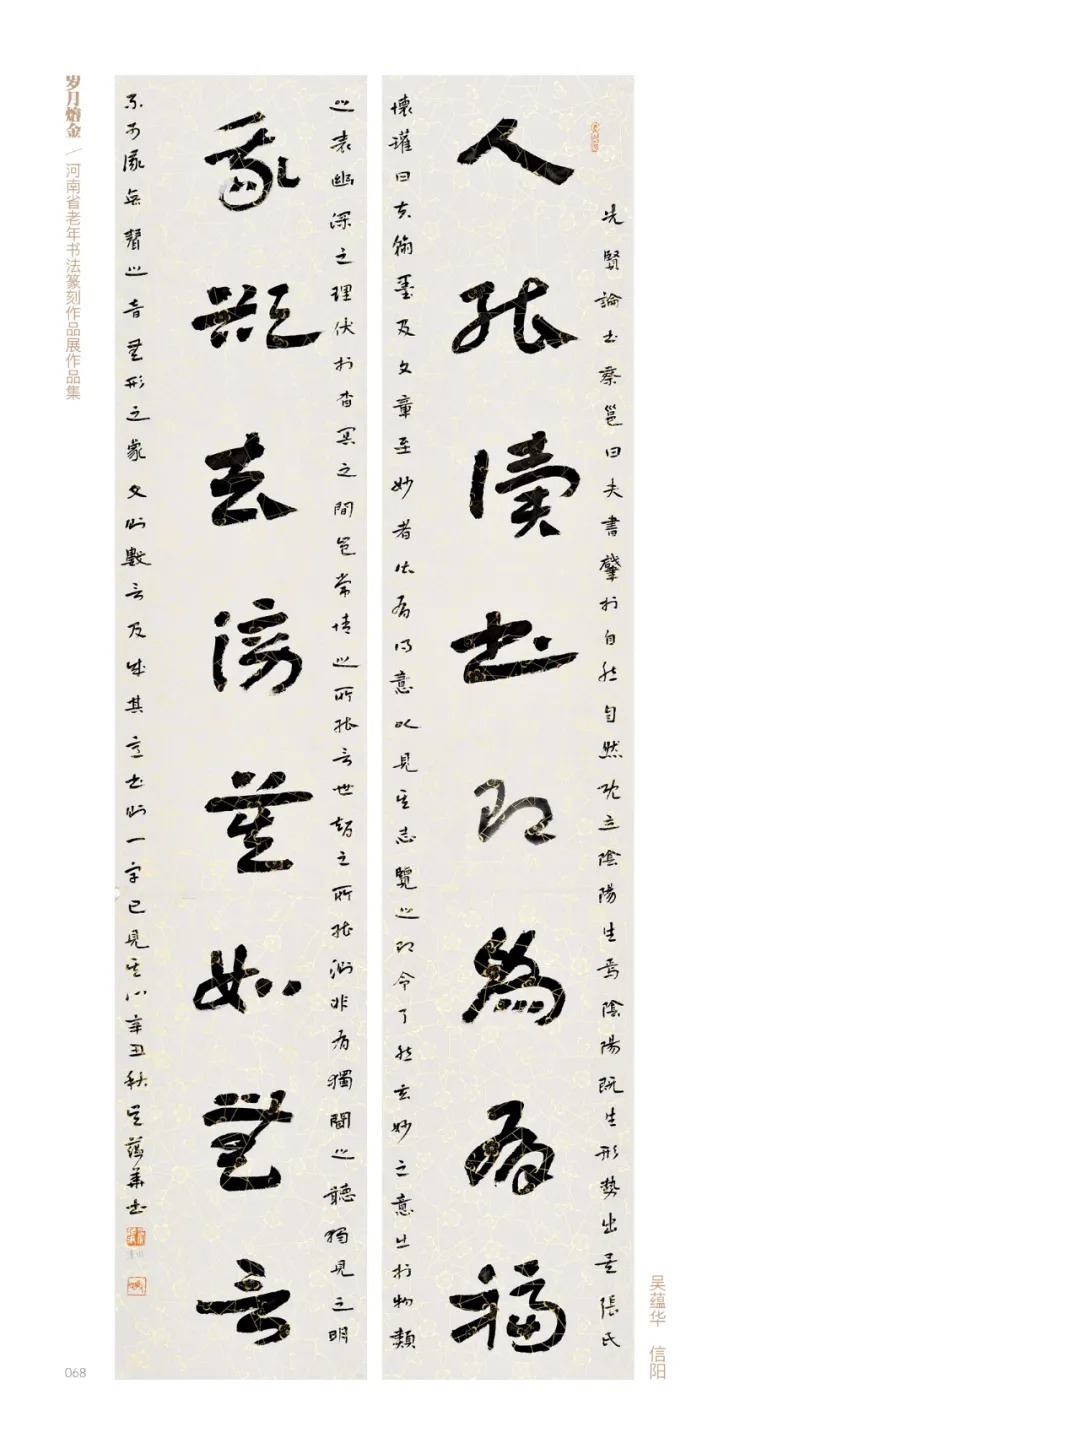 岁月熔金 / 河南省老年书法篆刻作品展作品集
先賢論書蔡邕曰夫書肇於自然自然既立陰陽生焉陰陽既生形勢出矣張氏
人能讀書即為有福
懷瓘曰夫翰墨及文章至妙者皆有意以見其志覽之即令了然玄妙之意出於物類
之表幽深之理伏於杳冥之間豈常情之所能言世智之所能測非有獨聞之聽獨見之明
我欲去謗莫如無言
不可無聲之音無形之象文則數言乃成其意書則一字已見其心辛丑秋吳蘊華書
吴蕴华 信阳
068